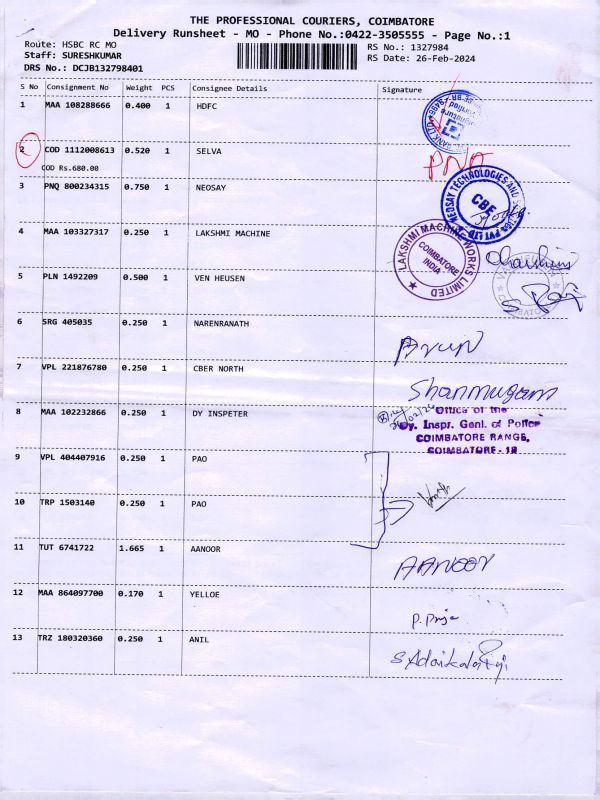 THE PROFESSIONAL COURIERS, COIMBATORE
Delivery Runsheet - MO - Phone No.:0422-3505555 - Page No.:1
Route: HSBC RC MO
RS No.: 1327984
Staff: SURESHKUMAR
RS Date: 26-Feb-2024
DRS No.: DCJB132798401
S No Consignment No Weight PCS Consignee Details Signature
1 MAA 108288666 0.400 1 HDFC
2 COD 1112008613 0.520 1 SELVA
COD Rs.680.00
3 PNQ 800234315 0.750 1 NEOSAY
NEOSAY TECHNOLOGIES AND
PVT LTD
CBE
4 MAA 103327317 0.250 1 LAKSHMI MACHINE
LAKSHMI MACHINE WORKS LIMITED
COIMBATORE
INDIA
5 PLN 1492209 0.500 1 VEN HEUSEN
6 SRG 405035 0.250 1 NARENRANATH
Arun
7 VPL 221876780 0.250 1 CBER NORTH
Shanmugam
8 MAA 102232866 0.250 1 DY INSPETER
Office of the
Dy. Inspr. Genl. of Police
COIMBATORE RANGE,
COIMBATORE - 18
9 VPL 404407916 0.250 1 PAO
10 TRP 1503140 0.250 1 PAO
11 TUT 6741722 1.665 1 AANOOR
AANOOR
12 MAA 864097700 0.170 1 YELLOE
P. Priya
13 TRZ 180320360 0.250 1 ANIL